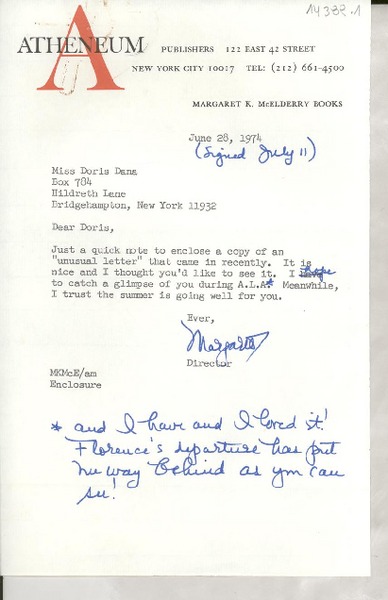 14382.1
ATHENEUM PUBLISHERS 122 EAST 42 STREET
NEW YORK CITY 10017 TEL: (212) 661-4500
MARGARET K. McELDERRY BOOKS
June 28, 1974
(Signed July 11)
Miss Doris Dana
Box 784
Hildreth Lane
Bridgehampton, New York 11932
Dear Doris,
Just a quick note to enclose a copy of an
"unusual letter" that came in recently. It is
nice and I thought you'd like to see it. I hope
to catch a glimpse of you during A.L.A.* Meanwhile,
I trust the summer is going well for you.
Ever,
Margaret
Director
MKMcE/am
Enclosure
* and I have and I loved it!
Florence's departure has put
me way behind as you can
see!